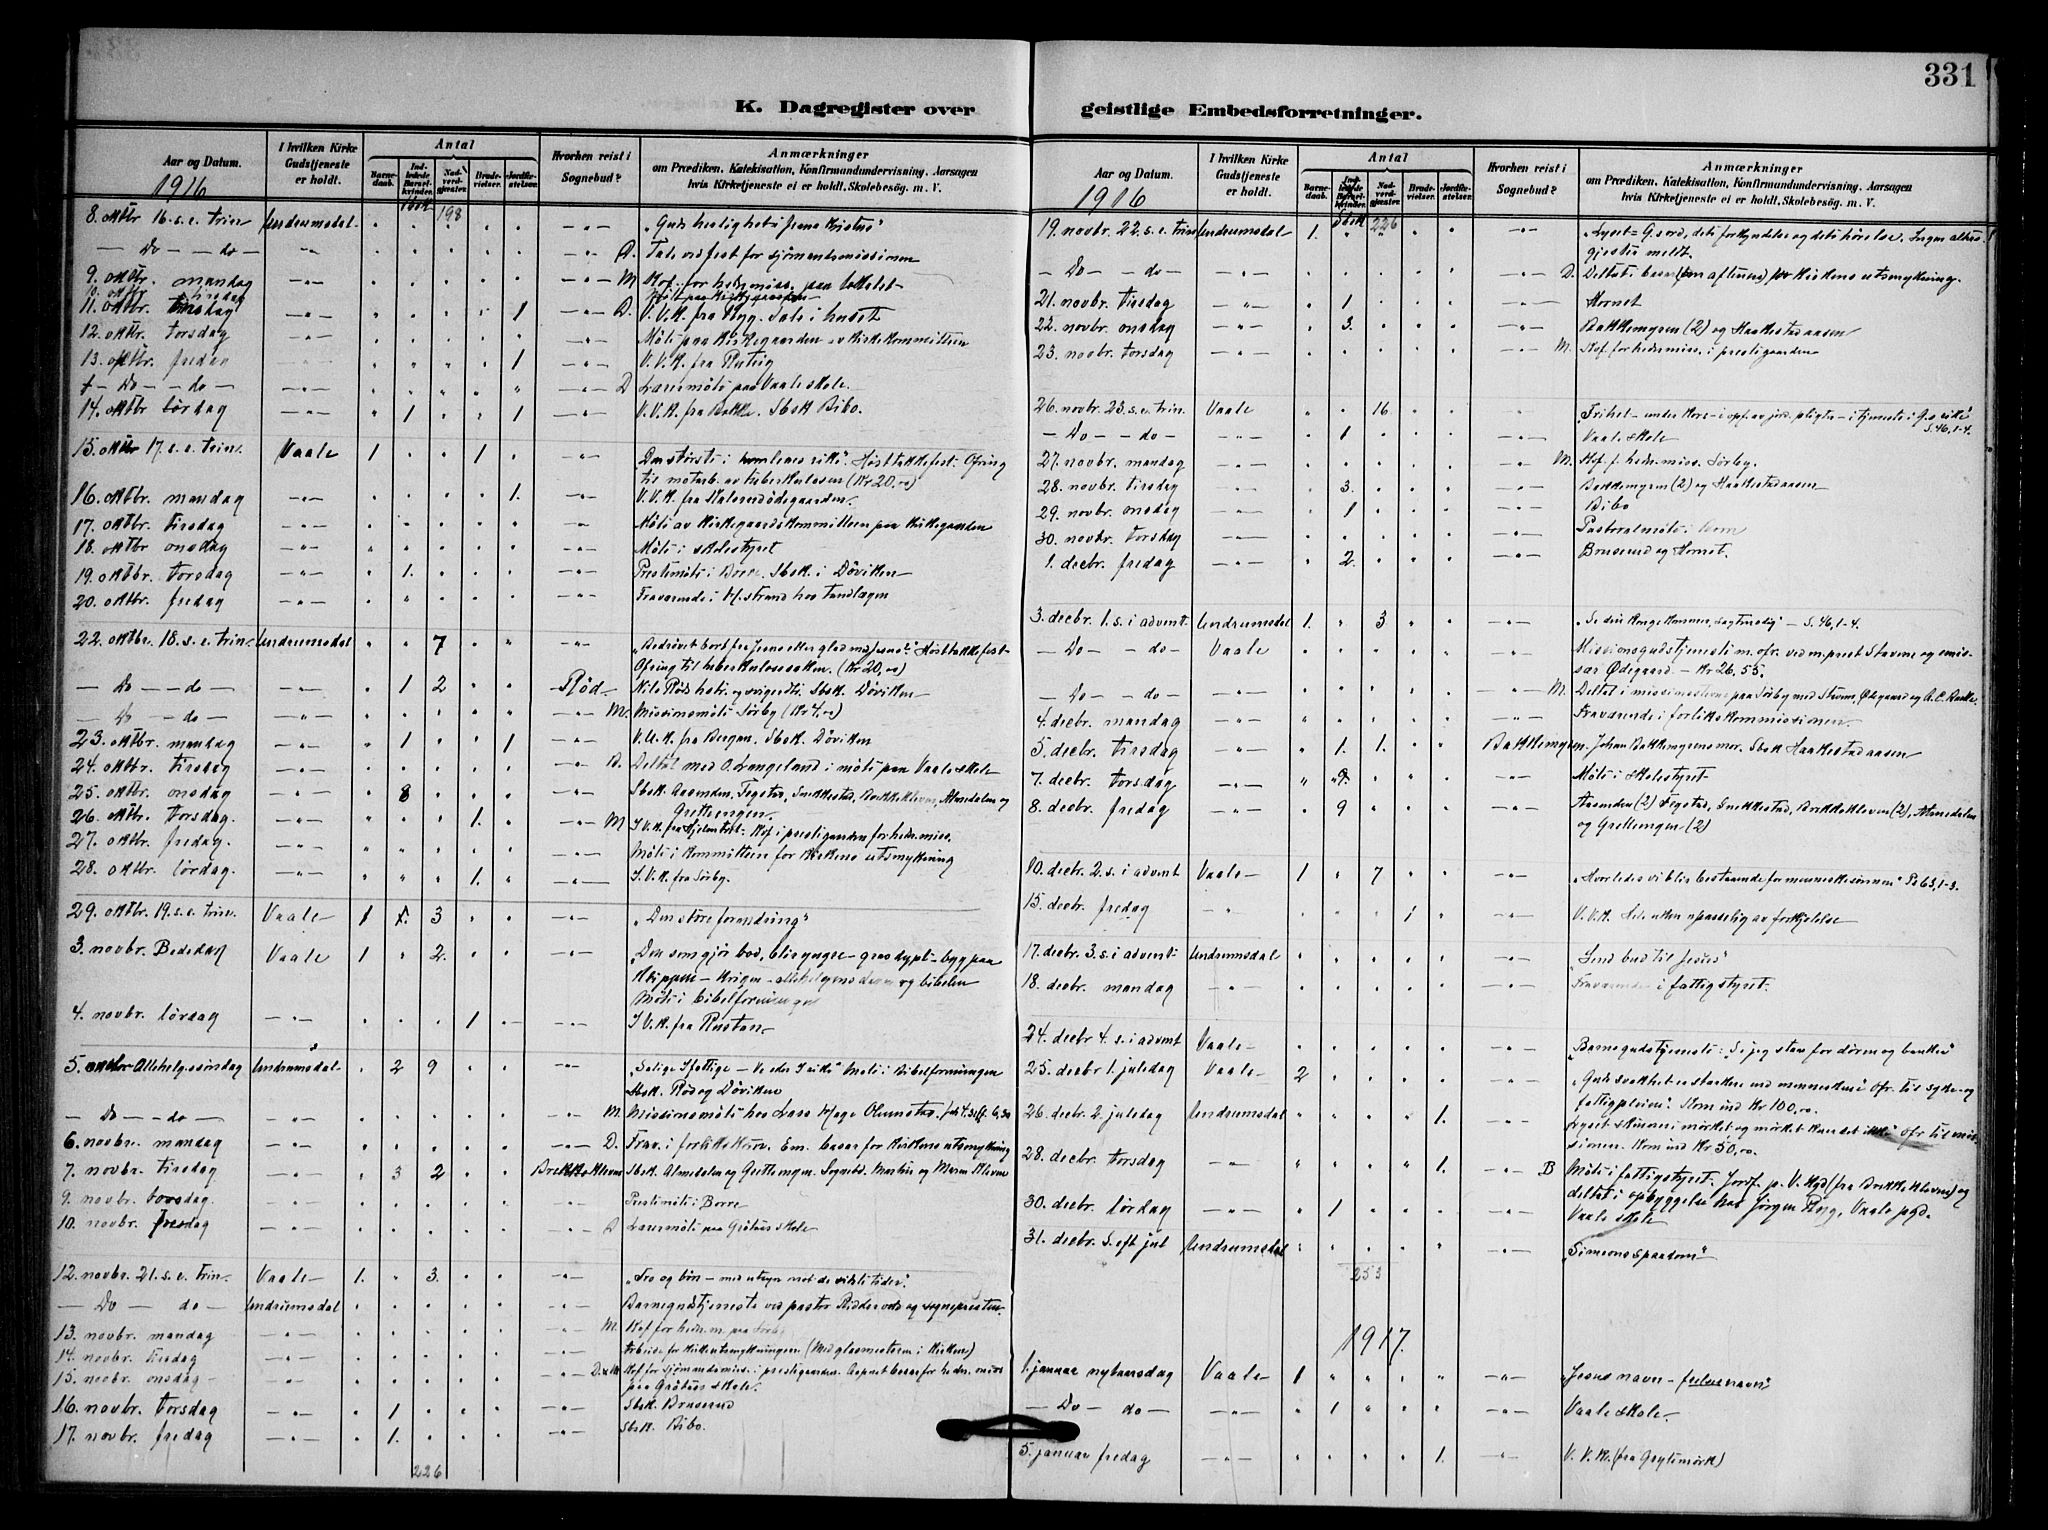 331
K. Dagregister over geistlige Embedsforretninger.
Aar og Datum. 1916
I hvilken Kirke Gudstjeneste er holdt.
Antal
Barnedaab. Indledede Barselkvinder. Nadverdgjester. Brudevielser. Jordfæstelser.
Hvorhen reist i Sognebud?
Anmærkninger
om Prædiken, Katekisation, Konfirmandundervisning, Aarsagen
hvis Kirketjeneste ei er holdt, Skolebesøg. m. V.
Sbsk 198
8. oktbr 16. s. e. trin Undrumsdal „Guds herlighet i Jesus Kristus"
— Do — — do — D. Tale ved fest for sjømandsmissionen
9. oktbr. mandag M. Kof. for hedn.miss. paa
10. oktbr. tirsdag Møte paa kirkegaarden
11. oktbr. onsdag 1 D. V.V.K. fra Ryg. Tale i huset
12. oktbr. torsdag Møte paa kirkegaarden av kirkekommitteen
13. oktbr. fredag 1 V.V.K. fra
— Do — — do — D Lærermøte paa Vaale skole.
14. oktbr lørdag 1 1 V.V.K. fra Bakke. Sbsk Bibo.
15. oktbr 17. s. e. trin. Vaale 1 1 Den største i himlenes rike". Høsttakkefest. Ofring
til motarb. av tuberkulosen (Kr 20,00)
16. oktbr. mandag 1. V.V.K. fra
17. oktbr. tirsdag Møte av kirkegaardskommitteen paa kirkegaarden
18. oktbr onsdag Møte i skolestyret
19. oktbr. torsdag 1. Prestemøte i Borre. Sbsk. i Døviken
20. oktbr. fredag Fraværende i H.strand hos tandlægen
22. oktbr. 18. s. e. trin. Undrumsdal 7 „Bedrøvet bort fra Jesus eller glad med Jesus". Høsttakkefest.
Ofring til tuberkulosesaken. (Kr 20,00)
— Do — — do — 1 2 Rød Nils Røds hstr. og svigerdt. Sbsk. Døviken
— Do — — do — M. Missionsmøte Sørby (Kr 4,00)
23. oktbr. mandag 1 1 V.V.K. fra Bergan. Sbsk. Døviken
24. oktbr. tirsdag D. Deltat med O. Langeland i møte paa Vaale skole
25. oktbr. onsdag 8 Sbsk. Aasenden, Fegstad, Snekkestad, Brekkekleven, Almedalen og
Grettengen.
26. oktbr. torsdag. 1. M I.V.K. fra Kof i prestegaarden for hedn. miss.
27. oktbr. fredag. Møte i kommitteen for kirkens utsmykning
28. oktbr. lørdag. 1. I.V.K. fra Sørby.
29. oktbr. 19. s. e. trin. Vaale 1 1. 3 „Den store forandring"
3. novbr. Bededag Vaale 1 2. „Den som gjør bod, blir yngre — grav dypt — byg paa
klippen — Krigen — allehelgensdagen og bibelen
Møte i bibelforeningen
4. novbr. lørdag 1 I.V.K. fra Rustan
5. Allehelg.søndag Undrumsdal 2 9 „Salige I fattige — Møte i Bibelforeningen
Sbsk. Rød og Døviken
— Do — — do — M. Missionsmøte hos Lars Hage
6. novbr. mandag D. Frav. i forlikskom. Em. basar for kirkens utsmykning
7. novbr. tirsdag 3 2 Brekkekleven Sbsk. Almedalen og Grettengen. Sognebd. Mathis og Maren Kleven
9. novbr. torsdag. Prestemøte i Borre
10. novbr. fredag D Lærermøte paa Gråtnes skole
12. novbr. 21. s. e. trin. Vaale 1. 3. „Tro og bøn — med utsyn mot de sidste tider".
— Do — do — Undrumsdal Barnegudstjeneste ved pastor Riddervold og sogneprestens
13. novbr. mandag M Kof for hedn.m. paa Sørby
14. novbr. tirsdag Arbeide for kirkeutsmykningen (med glasmesteren i kirken)
15. novbr. onsdag D. og M. Kof for sjømandsmiss. i prestegaarden. Aapnet basar for hedn. miss.
paa Gråtnes skole.
16. novbr. torsdag 1 Sbsk. Bruserud
17. novbr. fredag 1. Sbsk. Bibo.
226
Aar og Datum. 1916
I hvilken Kirke Gudstjeneste er holdt.
Antal
Barnedaab. Indledede Barselkvinder. Nadverdgjester. Brudevielser. Jordfæstelser.
Hvorhen reist i Sognebud?
Anmærkninger
om Prædiken, Katekisation, Konfirmandundervisning, Aarsagen
hvis Kirketjeneste ei er holdt, Skolebesøg. m. V.
Sbsk 226
19. novbr. 22. s. e. trin Undrumsdal 1. „Lyset = G.s ord, dets forkyndelse og dets hørelse. Ingen alters-
gjester meldt.
— Do — — do — D. Deltat i basar (om aftenen) for kirkens utsmykning.
21. novbr. tirsdag 1 Hornet
22. novbr. onsdag 3. Bakkemyren (2) og Haakestadaasen
23. novbr. torsdag M. Kof. for hedn.miss. i prestegaarden
26. novbr. 23. s. e. trin. Vaale 16 „Frihet — under Kors — i opf. av jord. pligter — i tjeneste i G.s rike"
S. 46, 1-4.
— Do — — do — 1 Vaale skole
27. novbr. mandag M. Kof. f. hedn. miss. Sørby.
28. novbr. tirsdag 3. Bakkemyren (2) og Haakestadaasen
29. novbr. onsdag 1 Bibo
30. novbr. torsdag Pastoralmøte i
1. decbr. fredag 2. Bruserud og Hornet.
3. decbr. 1. s. i advent. Undrumsdal 1. 3 „Se din Konge kommer, sagtmodig" — S. 46, 1-4.
— Do — — do — Vaale Missionsgudstjeneste m. ofr. ved m.prest Stavem og emis-
sær Ødegaard — Kr 26,55.
— Do — — do — M. Deltat i missionsstevne paa Sørby med Stavem, Ødegaard og A.C. Bakke.
4. decbr. mandag Fraværende i forlikskommissionen
5. decbr. tirsdag 1. 1. Bakkemyren. Johan Bakkemyrens mor. Sbsk Haakestadaasen
7. decbr. torsdag Møte i skolestyret
8. decbr. fredag 9 Aasenden (2) Fegstad, Snekkestad, Brekkekleven (2), Almedalen
og Grettengen (2)
10. decbr. 2. s. i advent Vaale 1 7 „Hvorledes vi blir bestaaende for menneskesønnen" Ps 63, 1-3.
15. decbr. fredag 1 V.V.K. Selv uten upasselig av forkjølelse
17. decbr. 3. s. i advent Undrumsdal „Send bud til Jesus"
18. decbr. mandag Fraværende i fattigstyret.
24. decbr 4. s. i advent Vaale „Barnegudstjeneste: „Se jeg staar for døren og banker"
25. decbr 1. juledag Vaale 2 „Guds svakhet er sterkere end menneskene" Ofr. til syke- og
fattigpleien". Kom ind Kr 100,00.
26. decbr. 2. juledag Undrumsdal 1. Lyset skinner i mørket og mørket fik det ikke" Ofr til mis-
sionen. Kom ind Kr 50,00.
28. decbr. torsdag 1. B Møte i fattigstyret. Jordf. p. V. Kgd (fra Brekkekleven) og
deltat i opbyggelse hos Jørgen Ryg, Vaale pgd.
30. decbr. lørdag 1 Vaale skole
31. decbr. S. eft jul Undrumsdal „Simeons spaadom"
253
1917.
1. januar nytaarsdag Vaale 1 „Jesus navn — frelsenavn"
— Do — do — 1 Vaale skole.
5. januar fredag 1. V.V.K. (fra